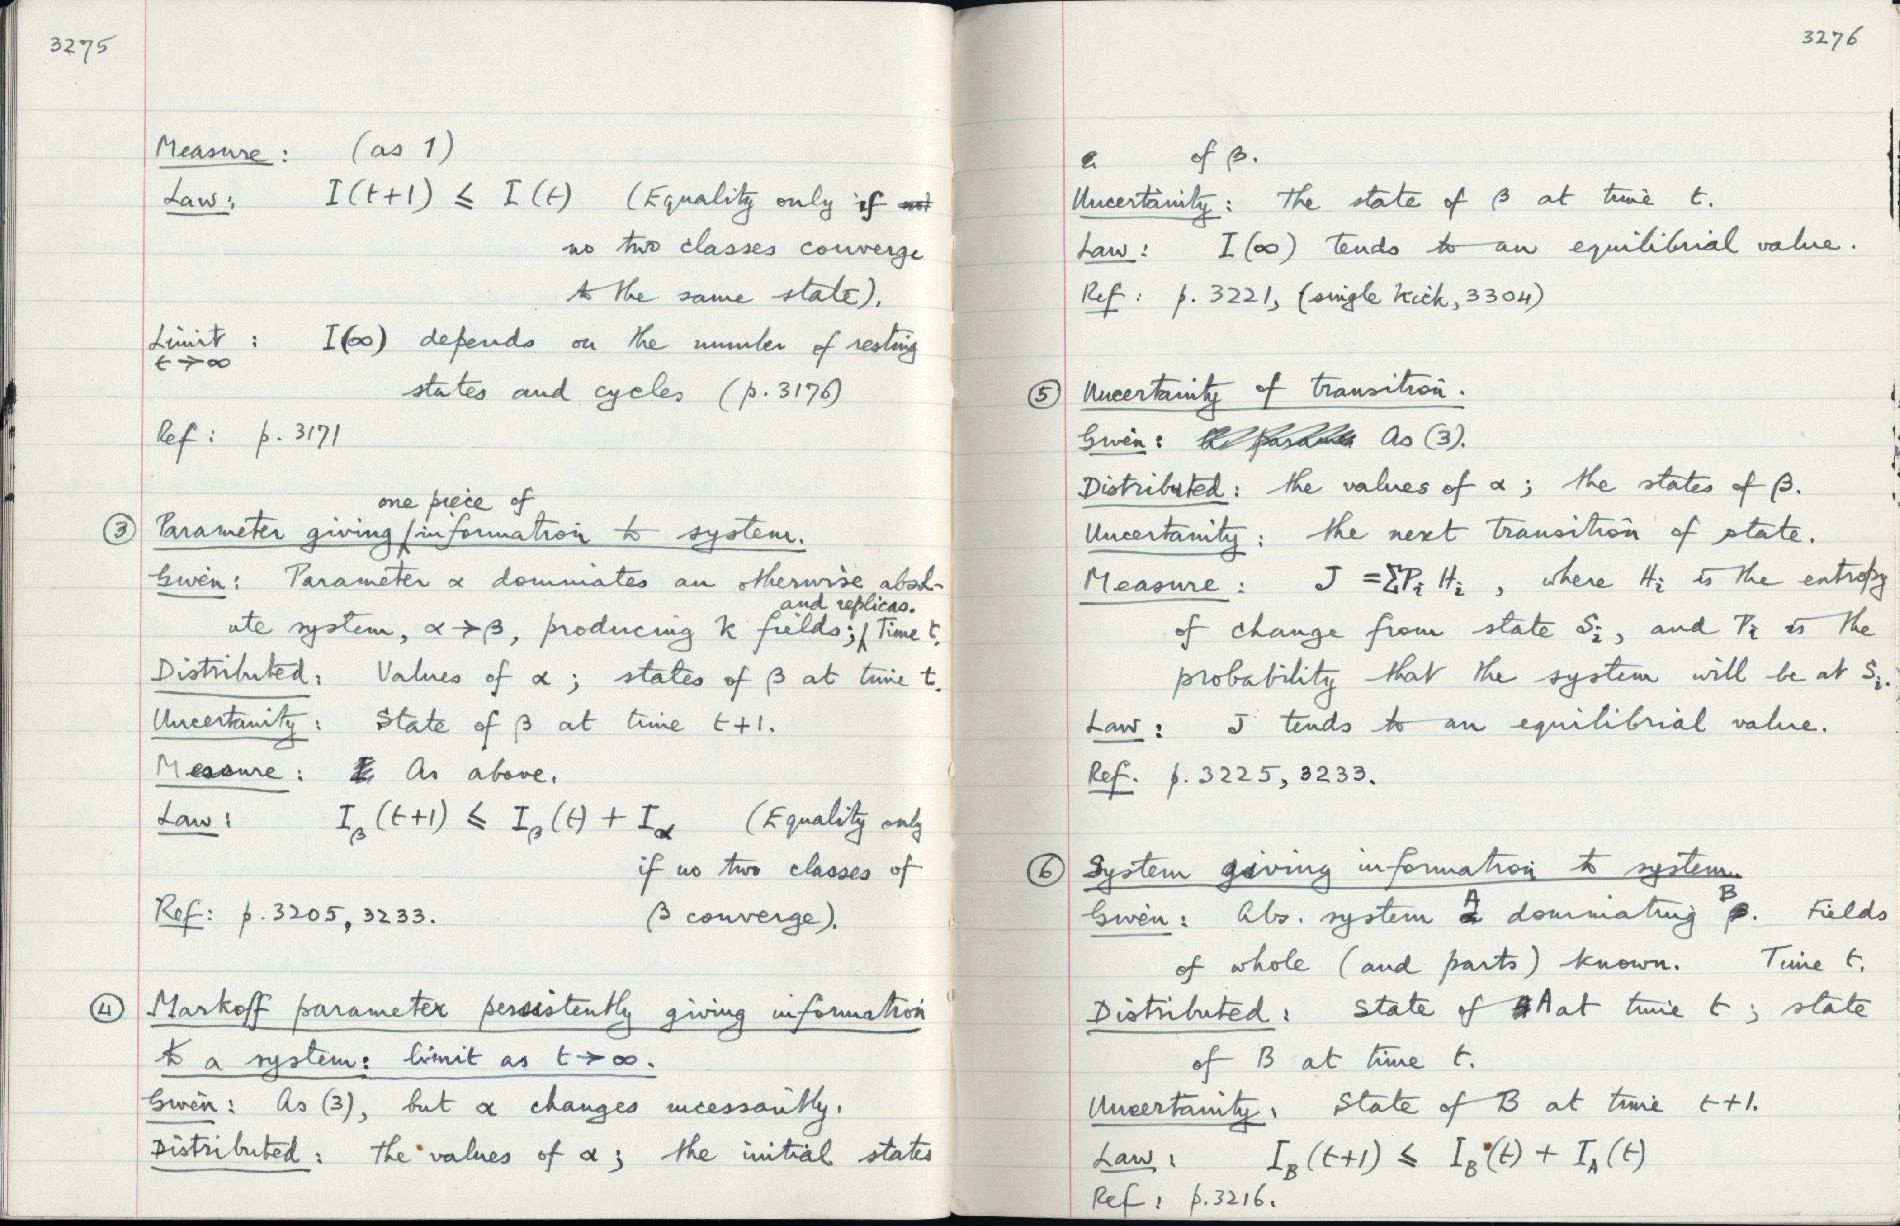 3275
Measure: (as 1)
Law: I(t+1) ⩽ I(t) (Equality only if not
no two classes converge
to the same state).
Limit : I(∞) depends on the number of resting
t→∞
states and cycles (p.3176)
Ref: p. 3171
one piece of
③ Parameter giving / information to system.
Given: Parameter α dominates an otherwise absol-
and replicas.
ute system, α→β, producing k fields; / Time t.
Distributed: Values of α; states of β at time t.
Uncertainity: State of β at time t+1.
Measure: As above.
Law: Iβ(t+1) ⩽ Iβ(t) + Iα (Equality only
if no two classes of
Ref: p.3205, 3233. β converge).
④ Markoff parameter persistently giving information
to a system: limit as t→∞.
Given: As (3), but α changes incessantly.
Distributed: The values of α; the initial states
3276
of β.
Uncertainity: The state of β at time t.
Law: I(∞) tends to an equilibrial value.
Ref: p. 3221, (single kick, 3304)
⑤ Uncertainity of transition.
Given: As (3).
Distributed: the values of α; the states of β.
Uncertainity: the next transition of state.
Measure: J = ΣPi Hi, where Hi is the entropy
of change from state Si, and Pi is the
probability that the system will be at Si.
Law: J tends to an equilibrial value.
Ref. p. 3225, 3233.
⑥ System giving information to system.
Given: Abs. system A dominating B. Fields
of whole (and parts) known. Time t.
Distributed: State of A at time t; state
of B at time t.
Uncertainity: State of B at time t+1.
Law: I_B(t+1) ⩽ I_B(t) + I_A(t)
Ref: p.3216.